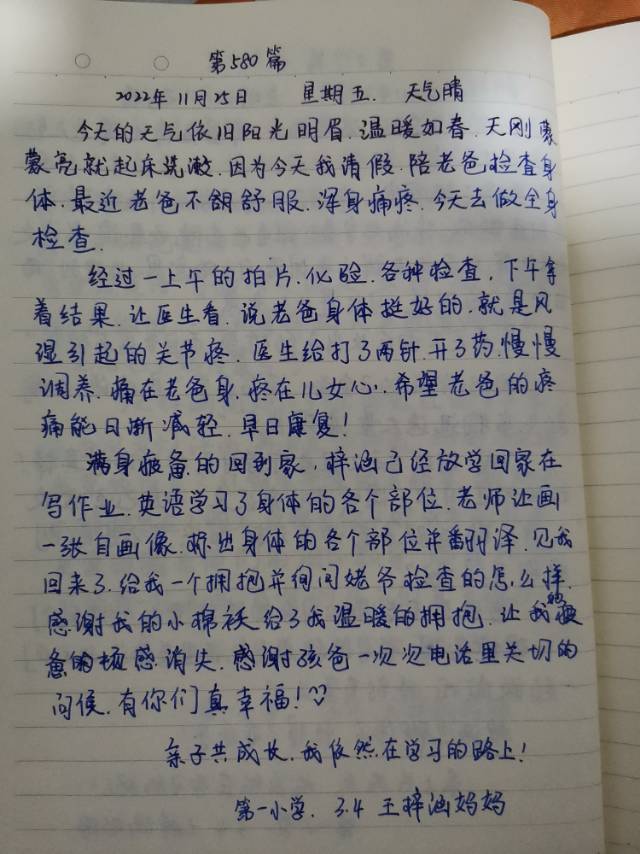 第580篇
2022年11月25日 星期五. 天气晴
今天的天气依旧阳光明眉.温暖如春.天刚蒙
蒙亮就起床洗漱.因为今天我请假.陪老爸检查身
体.最近老爸不舒舒服.浑身痛疼.今天去做全身
检查.
经过一上午的拍片.化验.各种检查,下午拿
着结果.让医生看.说老爸身体挺好的.就是风
湿引起的关节疼.医生给打了两针.开了药.慢慢
调养.痛在老爸身.疼在儿女心.希望老爸的疼
痛能日渐减轻.早日康复!
满身疲惫的回到家,梓涵已经放学回家在
写作业.英语学习了身体的各个部位.老师让画
一张自画像.标出身体的各个部位并翻译.见我
回来了.给我一个拥抱并询问姥爷检查的怎么样.
感谢我的小棉袄给了我温暖的拥抱.让我的疲
惫的感消失.感谢孩爸一次次电话里关切的
问候.有你们真幸福!
亲子共成长.我依然在学习的路上!
第一小学. 3.4 王梓涵妈妈